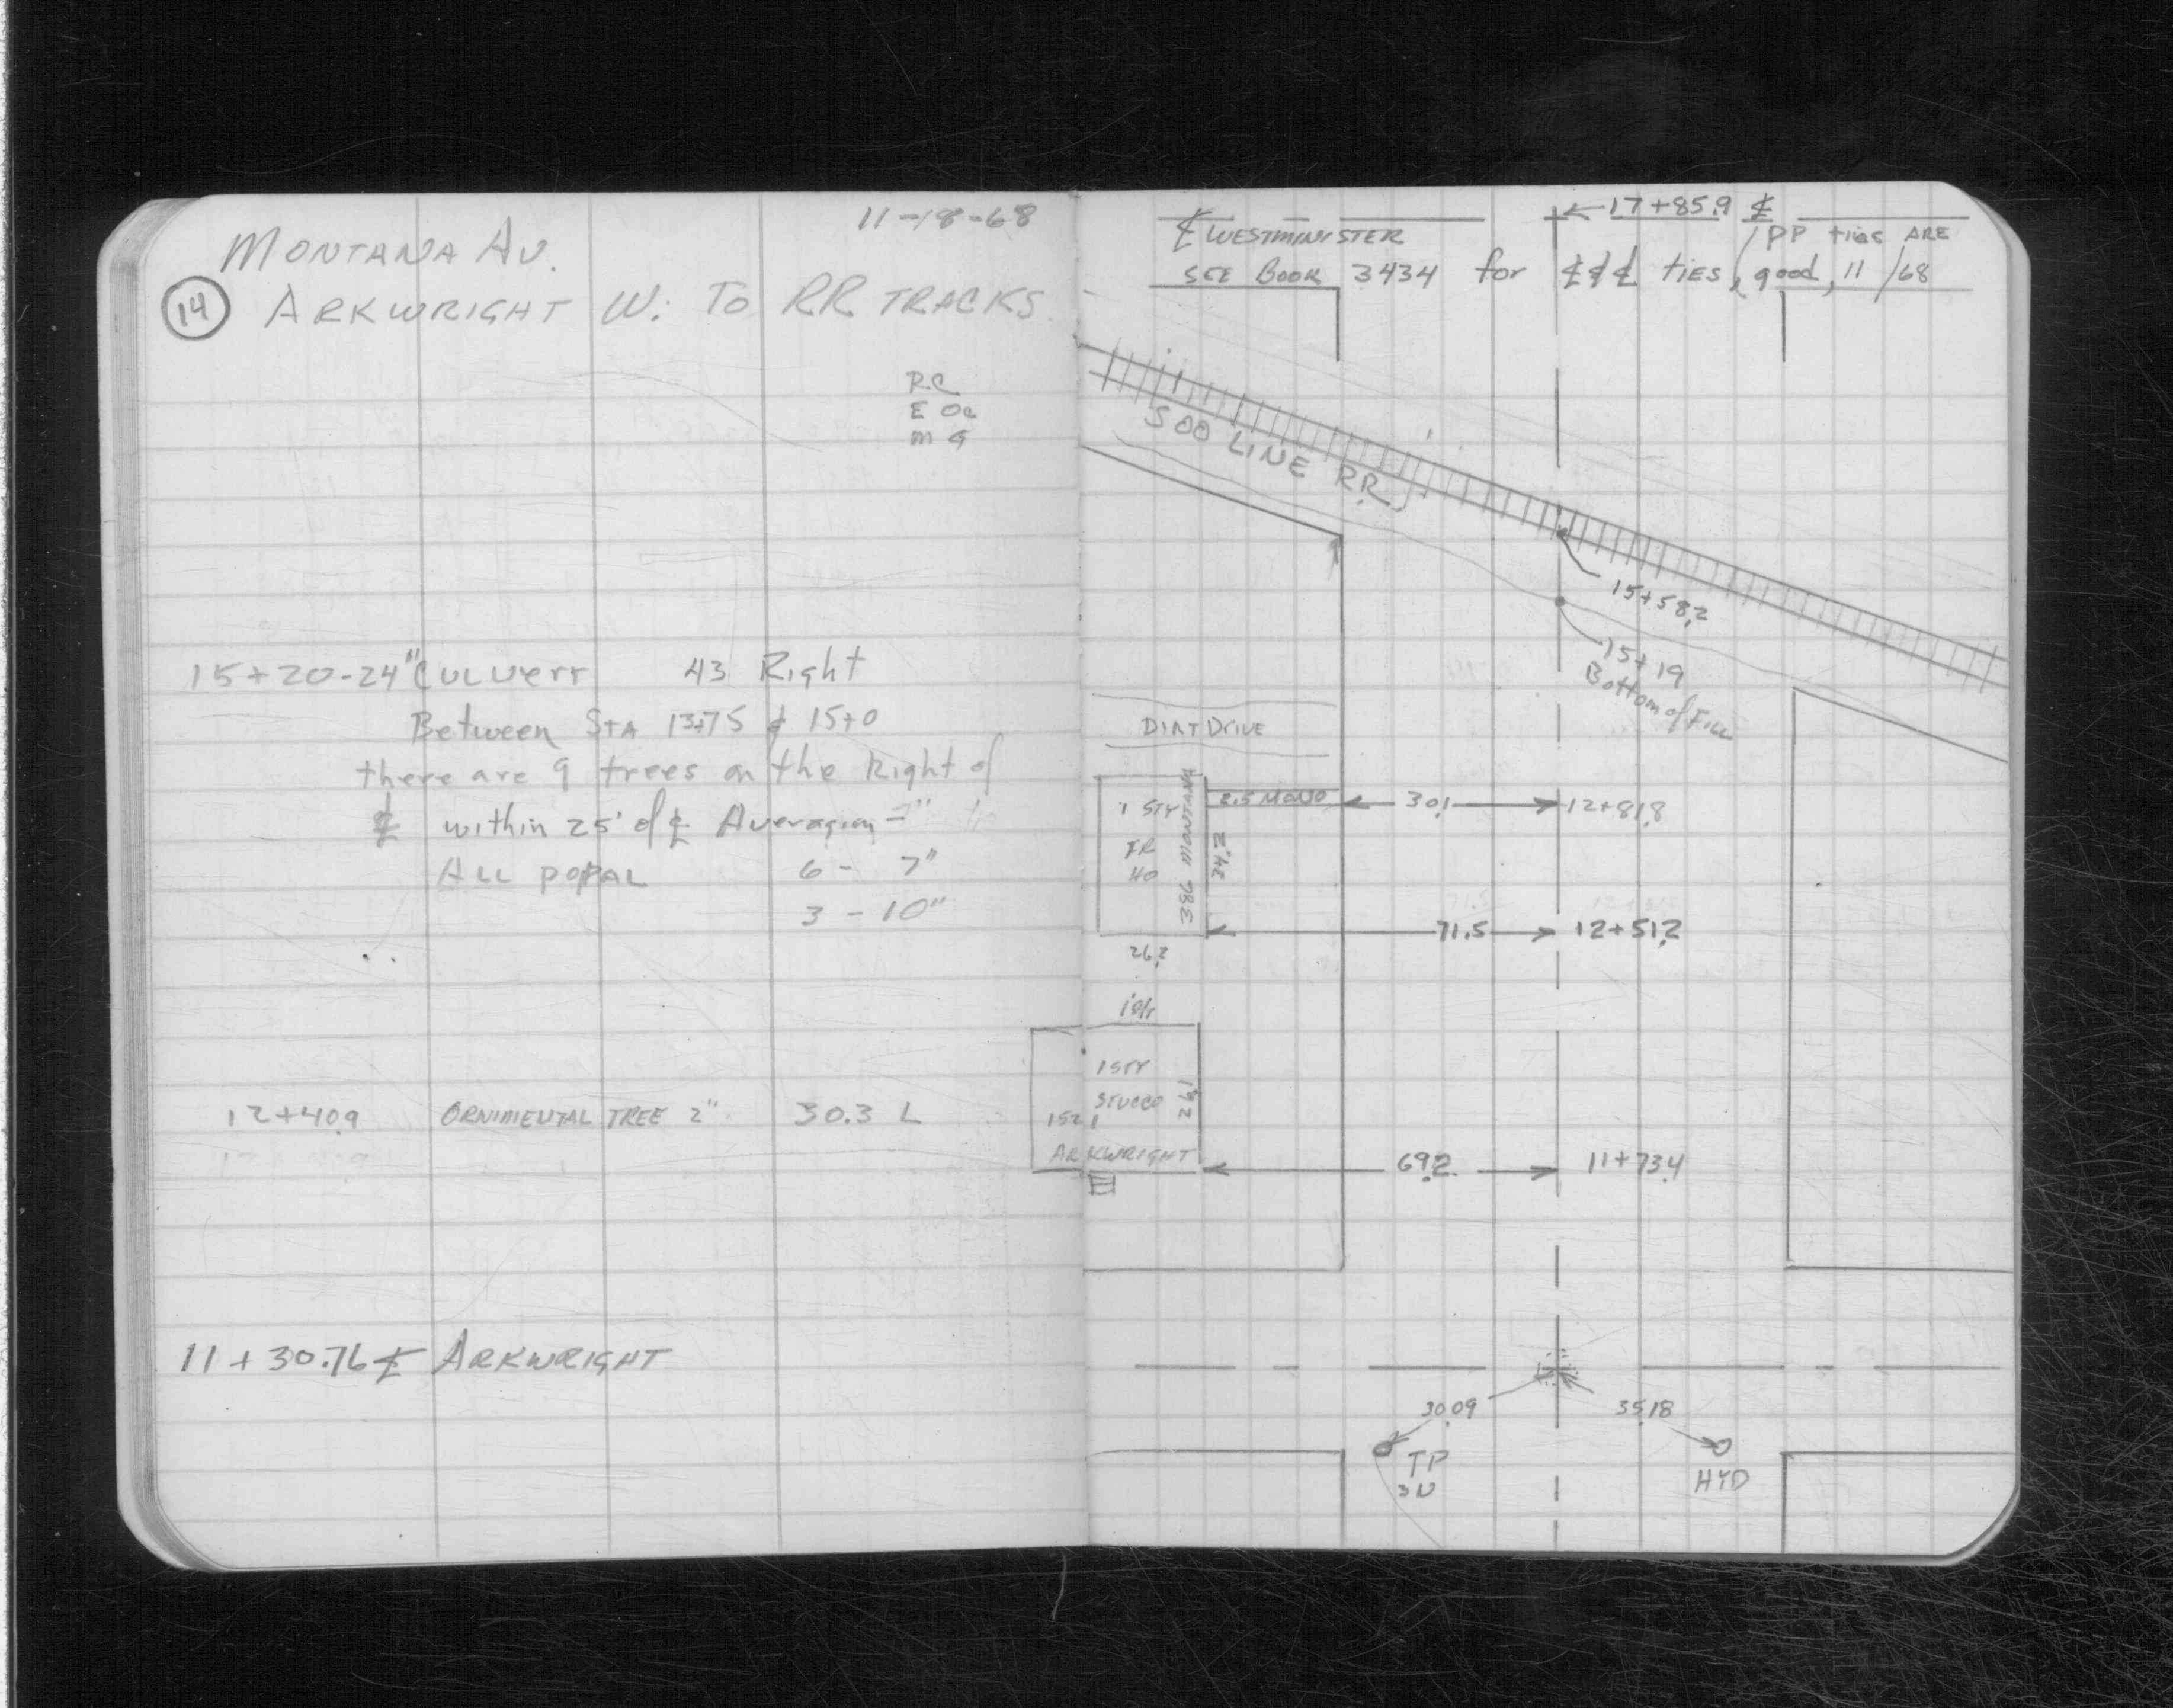 11-18-68
MONTANA AV.
14
ARKWRIGHT W. TO RR TRACKS
RC
E Oc
m G
15+20-24" CULVerT 43 Right
Between STA 13+75 & 15+0
there are 9 trees on the Right of
℄ within 25' of ℄ Averaging
ALL POPAL 6 - 7"
3 - 10"
12+40.9 ORNIMENTAL TREE 2" 30.3 L
11+30.76 ℄ ARKWRIGHT
17+85.9 ℄
℄ WESTMINISTER
PP ties ARE
SEE BOOK 3434 for ℄&℄ ties, good, 11/68
SOO LINE RR
15+58.2
15+19
Bottom of Fill
DIRT DRIVE
1 STY
FR
HO
386 MONTANA
24.2
2.5 MONO
30.1
12+81.8
71.5
12+51.2
26.2
1 STY
STUCCO
1521
ARKWRIGHT
69.2
11+73.4
30.09
35.18
TP
HYD